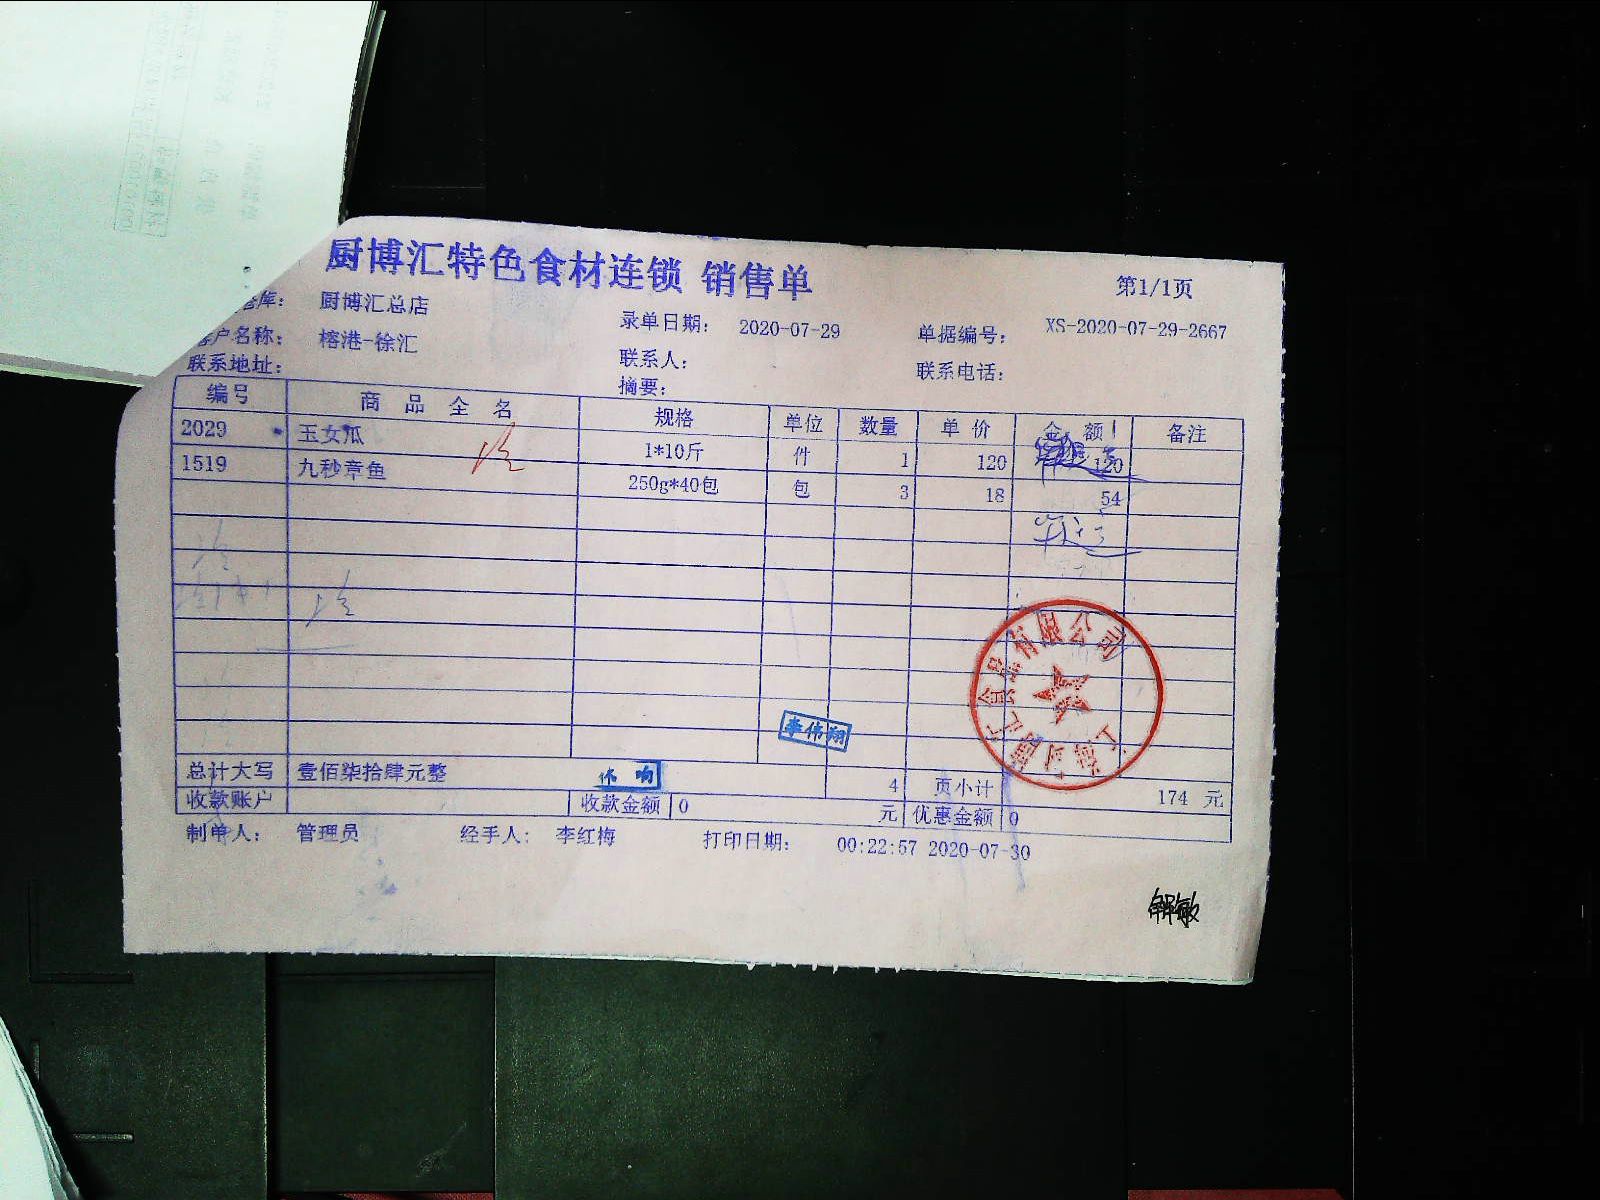 厨博汇特色食材连锁 销售单
第1/1页
库： 厨博汇总店
录单日期： 2020-07-29
单据编号： XS-2020-07-29-2667
客户名称： 榕港-徐汇
联系人：
联系电话：
联系地址：
摘要：
编号 商品全名 规格 单位 数量 单价 金额 备注
2029 玉女瓜 1*10斤 件 1 120 120
1519 九秒章鱼 250g*40包 包 3 18 54
李伟翔
总计大写 壹佰柒拾肆元整 4 页小计 174 元
收款账户 收款金额 0 元 优惠金额 0
制单人： 管理员 经手人： 李红梅 打印日期： 00:22:57 2020-07-30